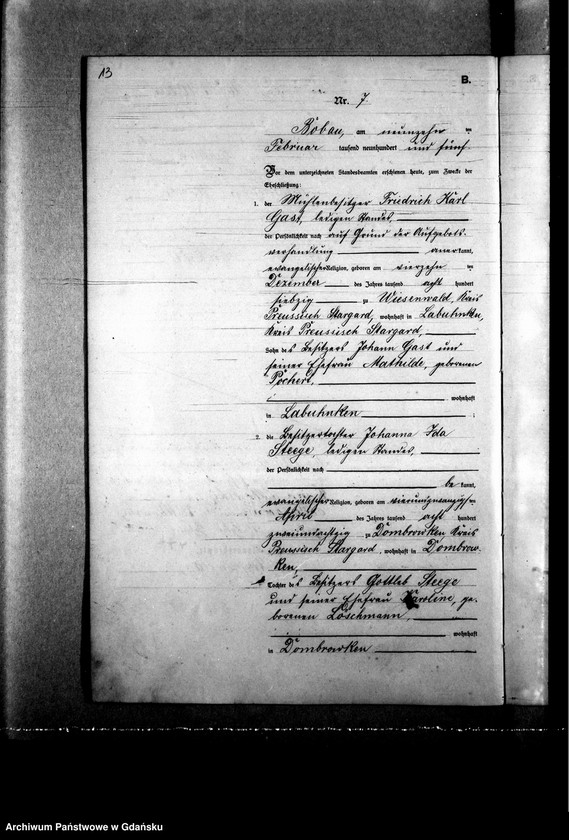 13
B.
Nr. 7.
Bobau, am neunzehnten
Februar tausend neunhundert und fünf
Vor dem unterzeichneten Standesbeamten erschienen heute, zum Zwecke der
Eheschließung:
1. der Mühlenbesitzer Friedrich Karl
Gast, ledigen Standes,
der Persönlichkeit nach auf Grund der Aufgebots-
verhandlung anerkannt,
evangelischer Religion, geboren am vierzehnten
Dezember des Jahres tausend acht hundert
siebzig zu Wiesenwald, Kreis
Preussisch Stargard, wohnhaft in Labuhnken,
Kreis Preussisch Stargard,
Sohn des Besitzers Johann Gast und
seiner Ehefrau Mathilde, geborenen
Pöchert,
wohnhaft
in Labuhnken ;
2. die Besitzertochter Johanna Ida
Steege, ledigen Standes,
der Persönlichkeit nach
be kannt,
evangelischer Religion, geboren am vierundzwanzigsten
April des Jahres tausend acht hundert
zweiundachtzig zu Dombrowken Kreis
Preussisch Stargard, wohnhaft in Dombrow-
ken,
Tochter des Besitzers Gottlieb Steege
und seiner Ehefrau Karoline, ge-
borenen Löschmann,
wohnhaft
in Dombrowken
Archiwum Państwowe w Gdańsku